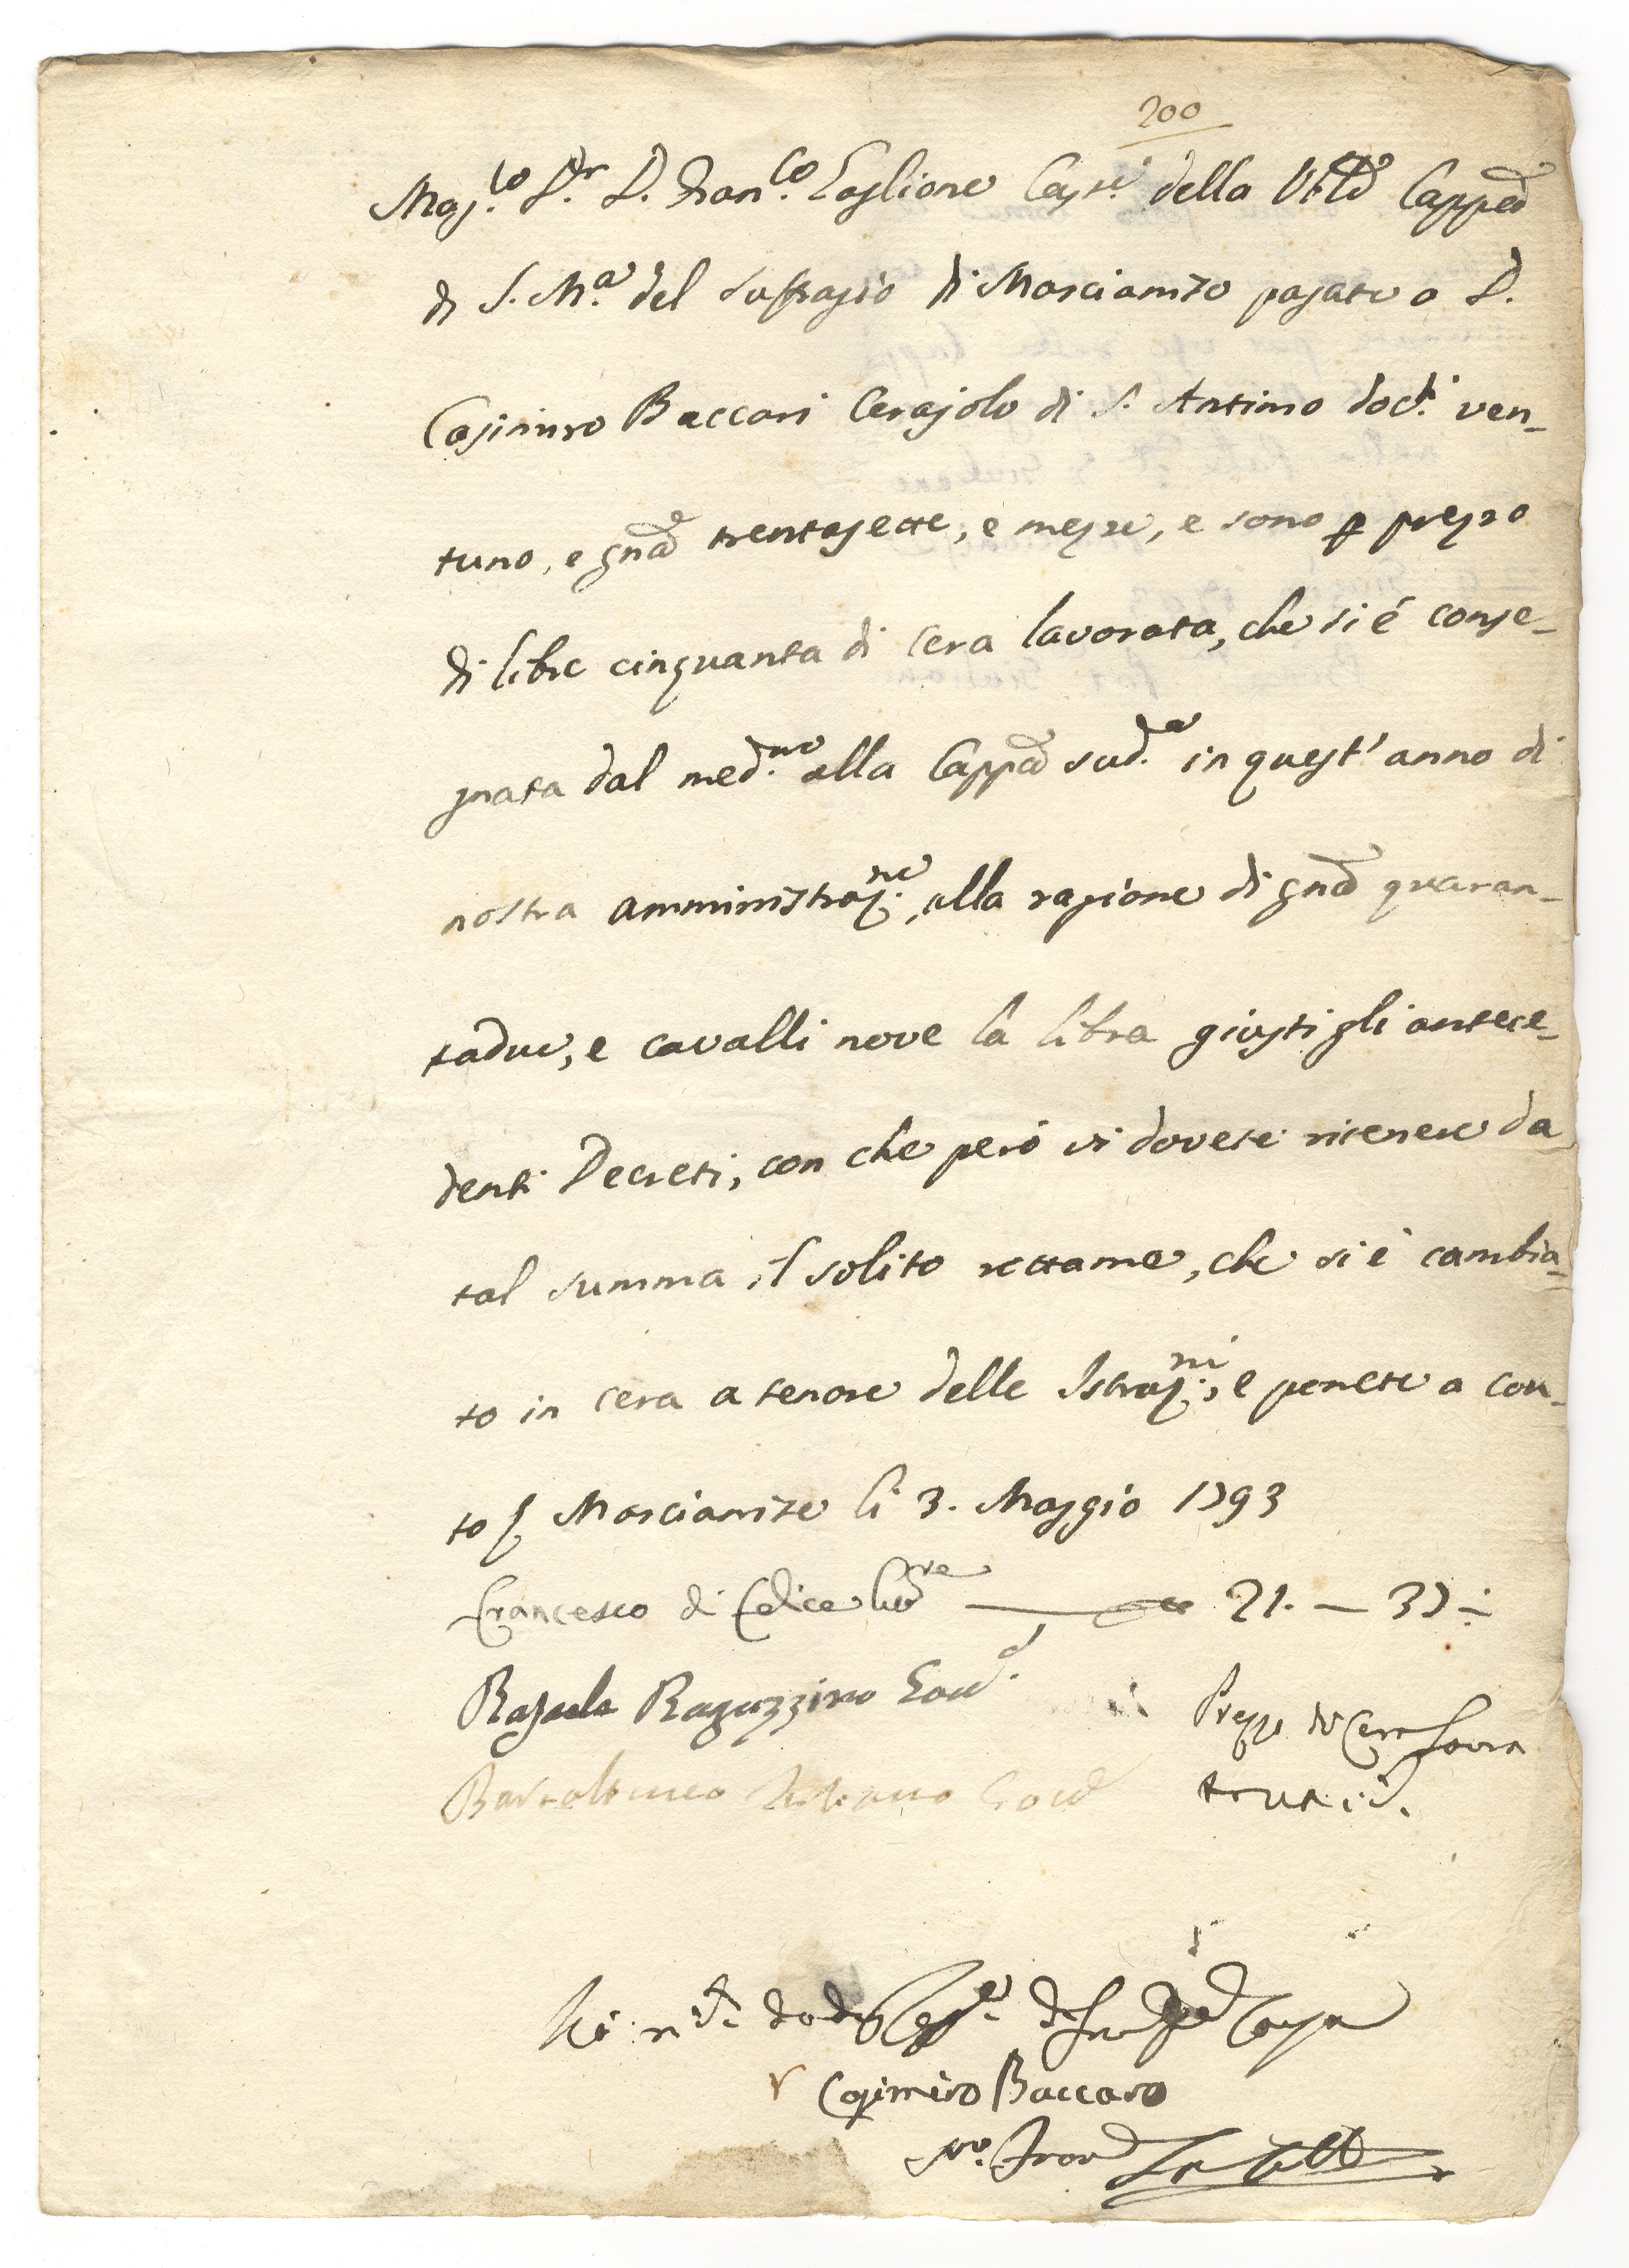 200
Mag.co D.r D. Fran.co Taglione Cass.e della Ven.le Capp.a
di S. M.a del Suffragio di Marcianise pagate a D.
Casimiro Baccari Cerajolo di S. Antimo doc.ti ven-
tuno, e gna trentasette, e mezze, e sono p prezzo
di libre cinquanta di cera lavorata, che si è conse-
gnata dal med.mo alla Cappa sud.a in quest' anno di
nostra amministraz.ne, alla ragione di gna quaran-
tadue, e cavalli nove la libra giusti gli antece-
denti Decreti, con che però vi dovete ritenere da
tal summa il solito rottame, che si è cambia-
to in cera a tenore delle Istruz.ni, e ponete a con-
to Marcianise li 3. Maggio 1793
Francesco di Felice Gov.re 21. — 37 ÷
Rafaele Raguzzino Gov.
Prezzo di Cera lavora
Bartolomeo Gov
Casimiro Baccaro